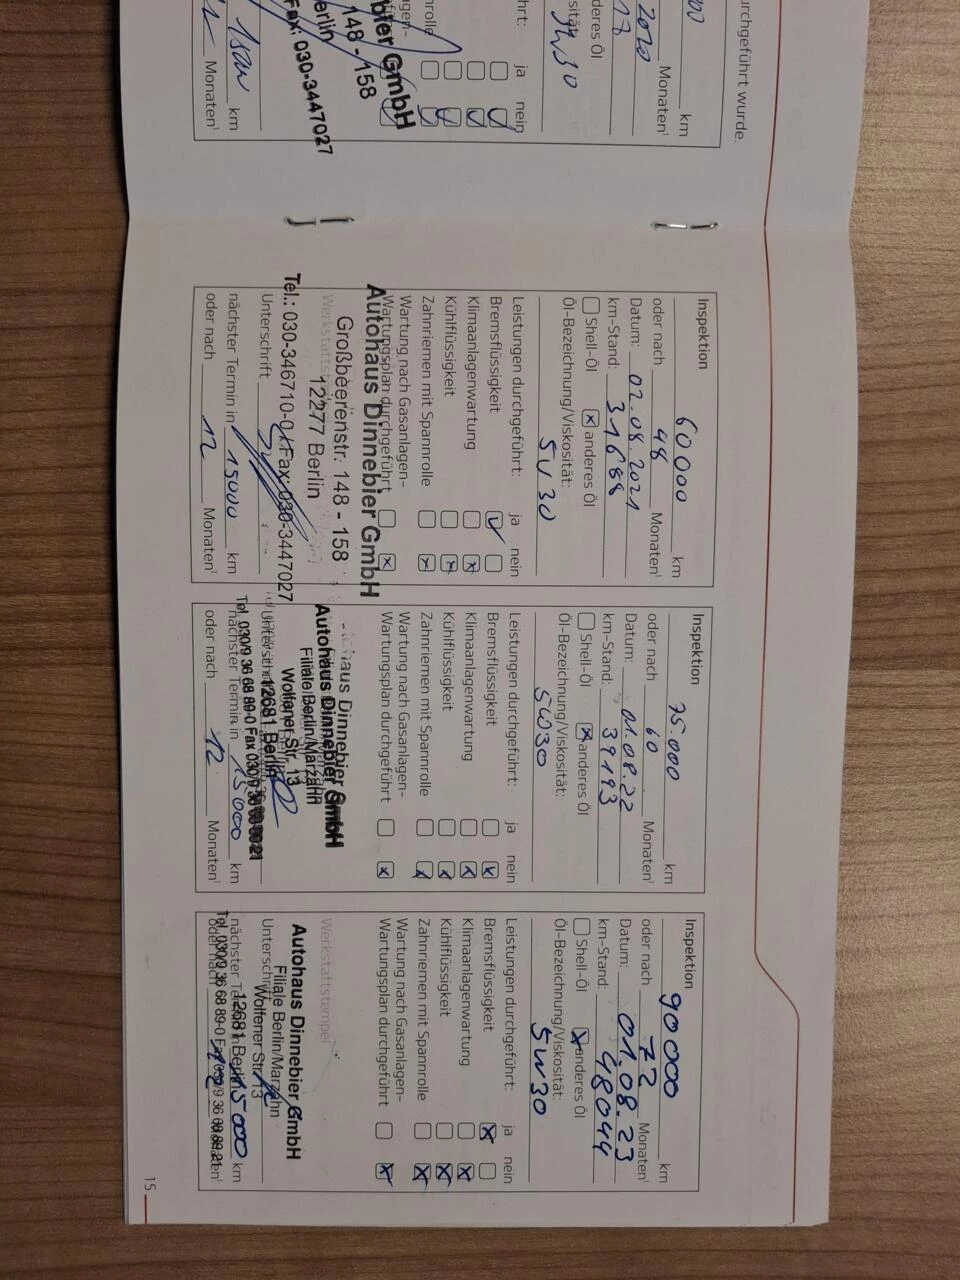 urchgeführt wurde.
km
2020 Monaten¹
nderes Öl
sität:
5W30
ja nein
hrt:
nrolle
agen-
bier GmbH
148 - 158
erlin
Fax: 030-3447027
km
12 Monaten¹
Inspektion
60000 km
oder nach 48 Monaten¹
Datum: 02.08.2021
km-Stand: 31688
Shell-Öl x anderes Öl
Öl-Bezeichnung/Viskosität:
5W30
Leistungen durchgeführt: ja nein
Bremsflüssigkeit
Klimaanlagenwartung
Kühlflüssigkeit
Zahnriemen mit Spannrolle
Wartung nach Gasanlagen-
Wartungsplan durchgeführt
Autohaus Dinnebier GmbH
Großbeerenstr. 148 - 158
12277 Berlin
Tel.: 030-346710-0 Fax: 030-3447027
Unterschrift
nächster Termin in 15000 km
oder nach 12 Monaten¹
Inspektion
75.000 km
oder nach 60 Monaten¹
Datum: 01.08.22
km-Stand: 39193
Shell-Öl x anderes Öl
Öl-Bezeichnung/Viskosität:
5W30
Leistungen durchgeführt: ja nein
Bremsflüssigkeit
Klimaanlagenwartung
Kühlflüssigkeit
Zahnriemen mit Spannrolle
Wartung nach Gasanlagen-
Wartungsplan durchgeführt
Autohaus Dinnebier GmbH
Filiale Berlin/Marzahn
Wolfener Str. 13
12681 Berlin
Tel. 030/9 36 68 89-0 Fax 030/9 36 68 89-21
nächster Termin in 15000 km
oder nach 12 Monaten¹
Inspektion
90000 km
oder nach 72 Monaten¹
Datum: 01.08.23
km-Stand: 48044
Shell-Öl x anderes Öl
Öl-Bezeichnung/Viskosität:
5W30
Leistungen durchgeführt: ja nein
Bremsflüssigkeit
Klimaanlagenwartung
Kühlflüssigkeit
Zahnriemen mit Spannrolle
Wartung nach Gasanlagen-
Wartungsplan durchgeführt
Werkstattstempel
Autohaus Dinnebier GmbH
Filiale Berlin/Marzahn
Wolfener Str. 13
12681 Berlin
Tel. 030/9 36 68 89-0 Fax 030/9 36 68 89-21
Unterschrift
nächster Termin in 15000 km
oder nach 12 Monaten¹
15